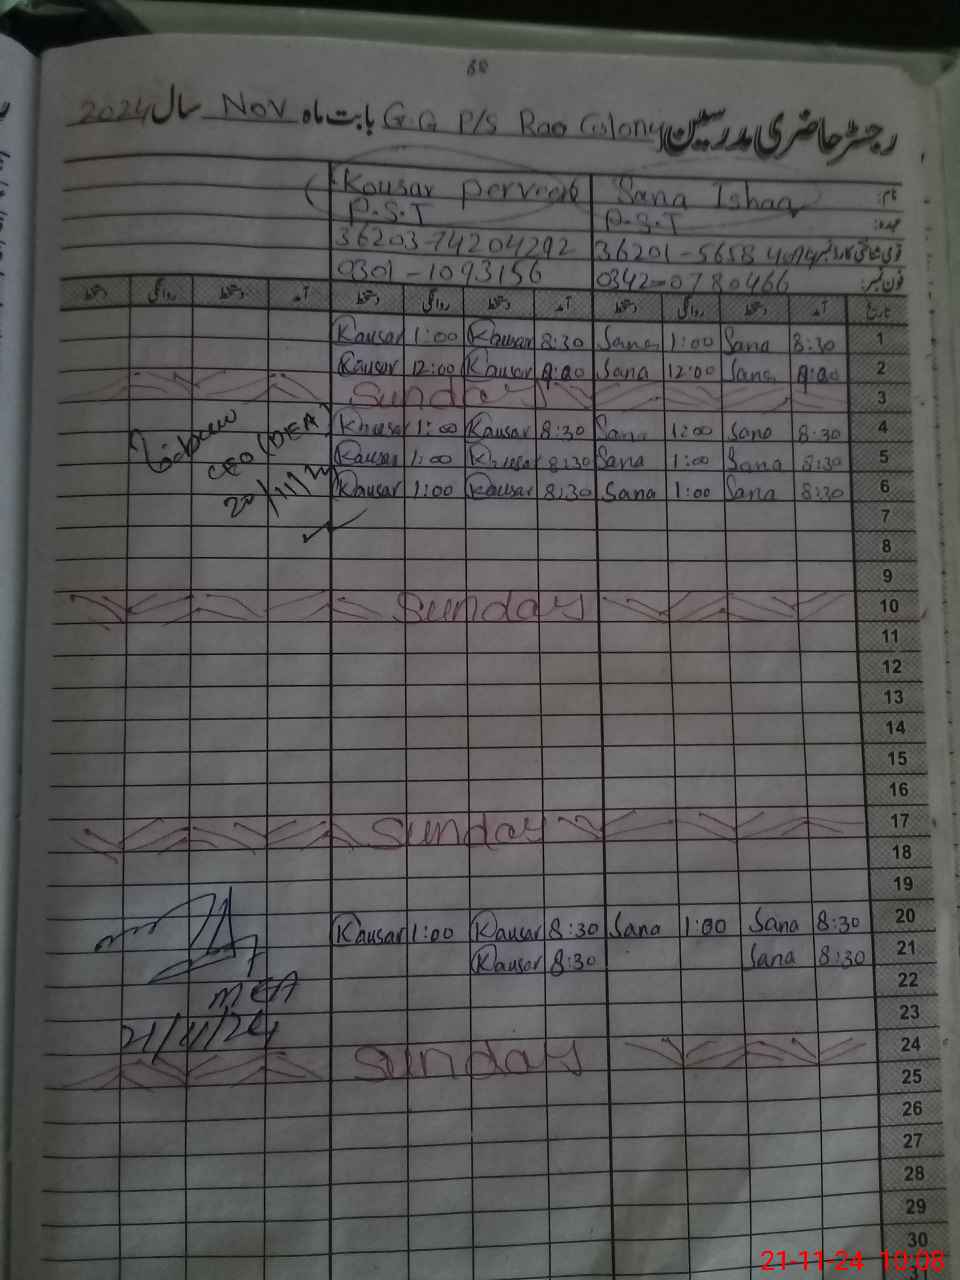 60
رجسٹر حاضری مدرسین G.G P/S Rao Colony بابت ماہ Nov سال 2024
نام: Sana Ishaq Kousar Perveen
عہدہ: P.S.T P.S.T
قومی شناختی کارڈ نمبر 36203-74204292
فون نمبر: 0342-0780466 0301-1093156
تاریخ آمد دستخط روانگی دستخط آمد دستخط روانگی دستخط آمد دستخط روانگی دستخط
1 8:30 Sana 1:00 Sana 8:30 Kausar 1:00 Kausar
2 Sana 12:00 Sana Kausar 12:00 Kausar
3 Sunday
4 8:30 Sana 1:00 Sana 8:30 Kausar 1:00 Khusar
5 8:30 Sana 1:00 Sana 8:30 Khusar 1:00 Kausar
6 8:30 Sana 1:00 Sana 8:30 Kausar 1:00 Kausar
CEO (DEA)
20/11/24
7
8
9
10 Sunday
11
12
13
14
15
16
17 Sunday
18
19
20 8:30 Sana 1:00 Sana 8:30 Kausar 1:00 Kausar
21 8:30 Sana 8:30 Kausar
22
MEA
23
21/11/24
24 Sunday
25
26
27
28
29
30
31
21-11-24 10:08